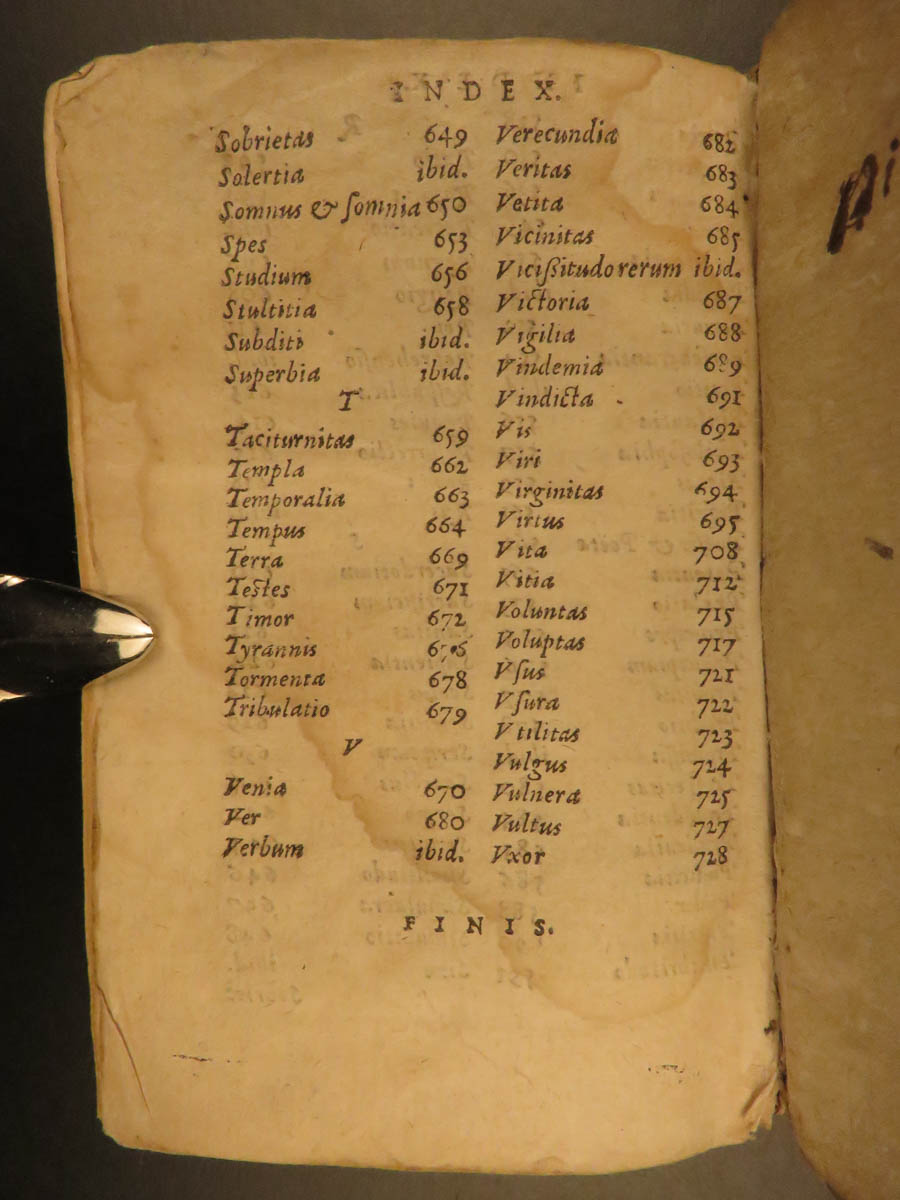 INDEX.
Sobrietas 649
Solertia ibid.
Somnus & ſomnia 650
Spes 653
Studium 656
Stultitia 658
Subditi ibid.
Superbia ibid.
T
Taciturnitas 659
Templa 662
Temporalia 663
Tempus 664
Terra 669
Testes 671
Timor 672
Tyrannis
Tormenta 678
Tribulatio 679
V
Venia 670
Ver 680
Verbum ibid.
Verecundia 682
Veritas 683
Vetita 684
Vicinitas 685
Viciſsitudo rerum ibid.
Victoria 687
Vigilia 688
Vindemia 689
Vindicta 691
Vis 692
Viri 693
Virginitas 694
Virtus 695
Vita 708
Vitia 712
Voluntas 715
Voluptas 717
Vſus 721
Vſura 722
Vtilitas 723
Vulgus 724
Vulnera 725
Vultus 727
Vxor 728
FINIS.